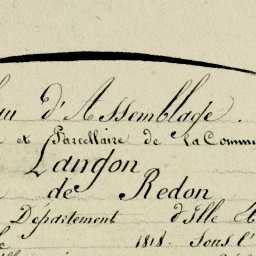 d'Assemblage.
et Parcellaire de la Commu
Langon
de Redon
Département d'Ille &
1818. Sous l'